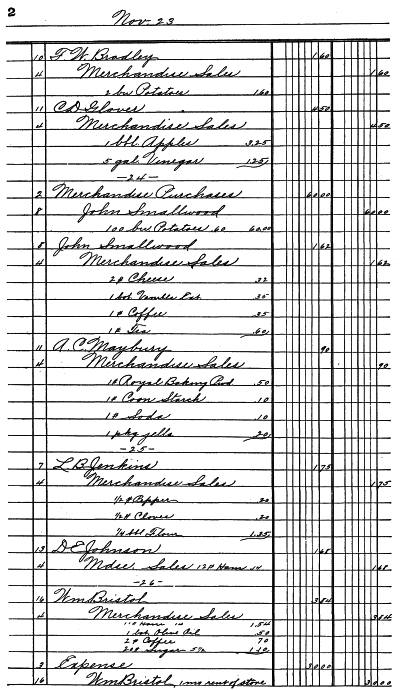 2
Nov. 23
10 F. W. Bradley 1 60
4 Merchandise Sales 1 60
2 bu Potatoes 1 60
11 C D Glover 4 50
4 Merchandise Sales 4 50
1 bbl Apples 3.25
5 gal Vinegar 1 25
—24—
2 Merchandise Purchases 60 00
8 John Smallwood 60 00
100 bu Potatoes .60 60.00
8 John Smallwood 1 62
4 Merchandise Sales 1 62
2# Cheese .32
1 bot Vanilla Ext. .35
1# Coffee .35
1# Tea .60
11 A. C. Maybury 90
4 Merchandise Sales 90
1# Royal Baking Pod .50
1# Coon Starch .10
1# Soda .10
1 pkg jella 20
—25—
7 L B Jenkins 1 75
4 Merchandise Sales 1 75
1/2# Pepper .20
1/2# Cloves .20
1/4 bbl Flour 1.35
13 D E Johnson 1 68
4 Mdse. Sales 12# Ham 14 1 68
—26—
16 Wm Bristol 3 84
4 Merchandise Sales 3 84
11# Ham 14 1.54
1 bot Olive Oil .50
2# Coffee 70
20# Sugar 1 10
3 Expense 30 00
16 Wm Bristol 1 mo rent of store 30 00